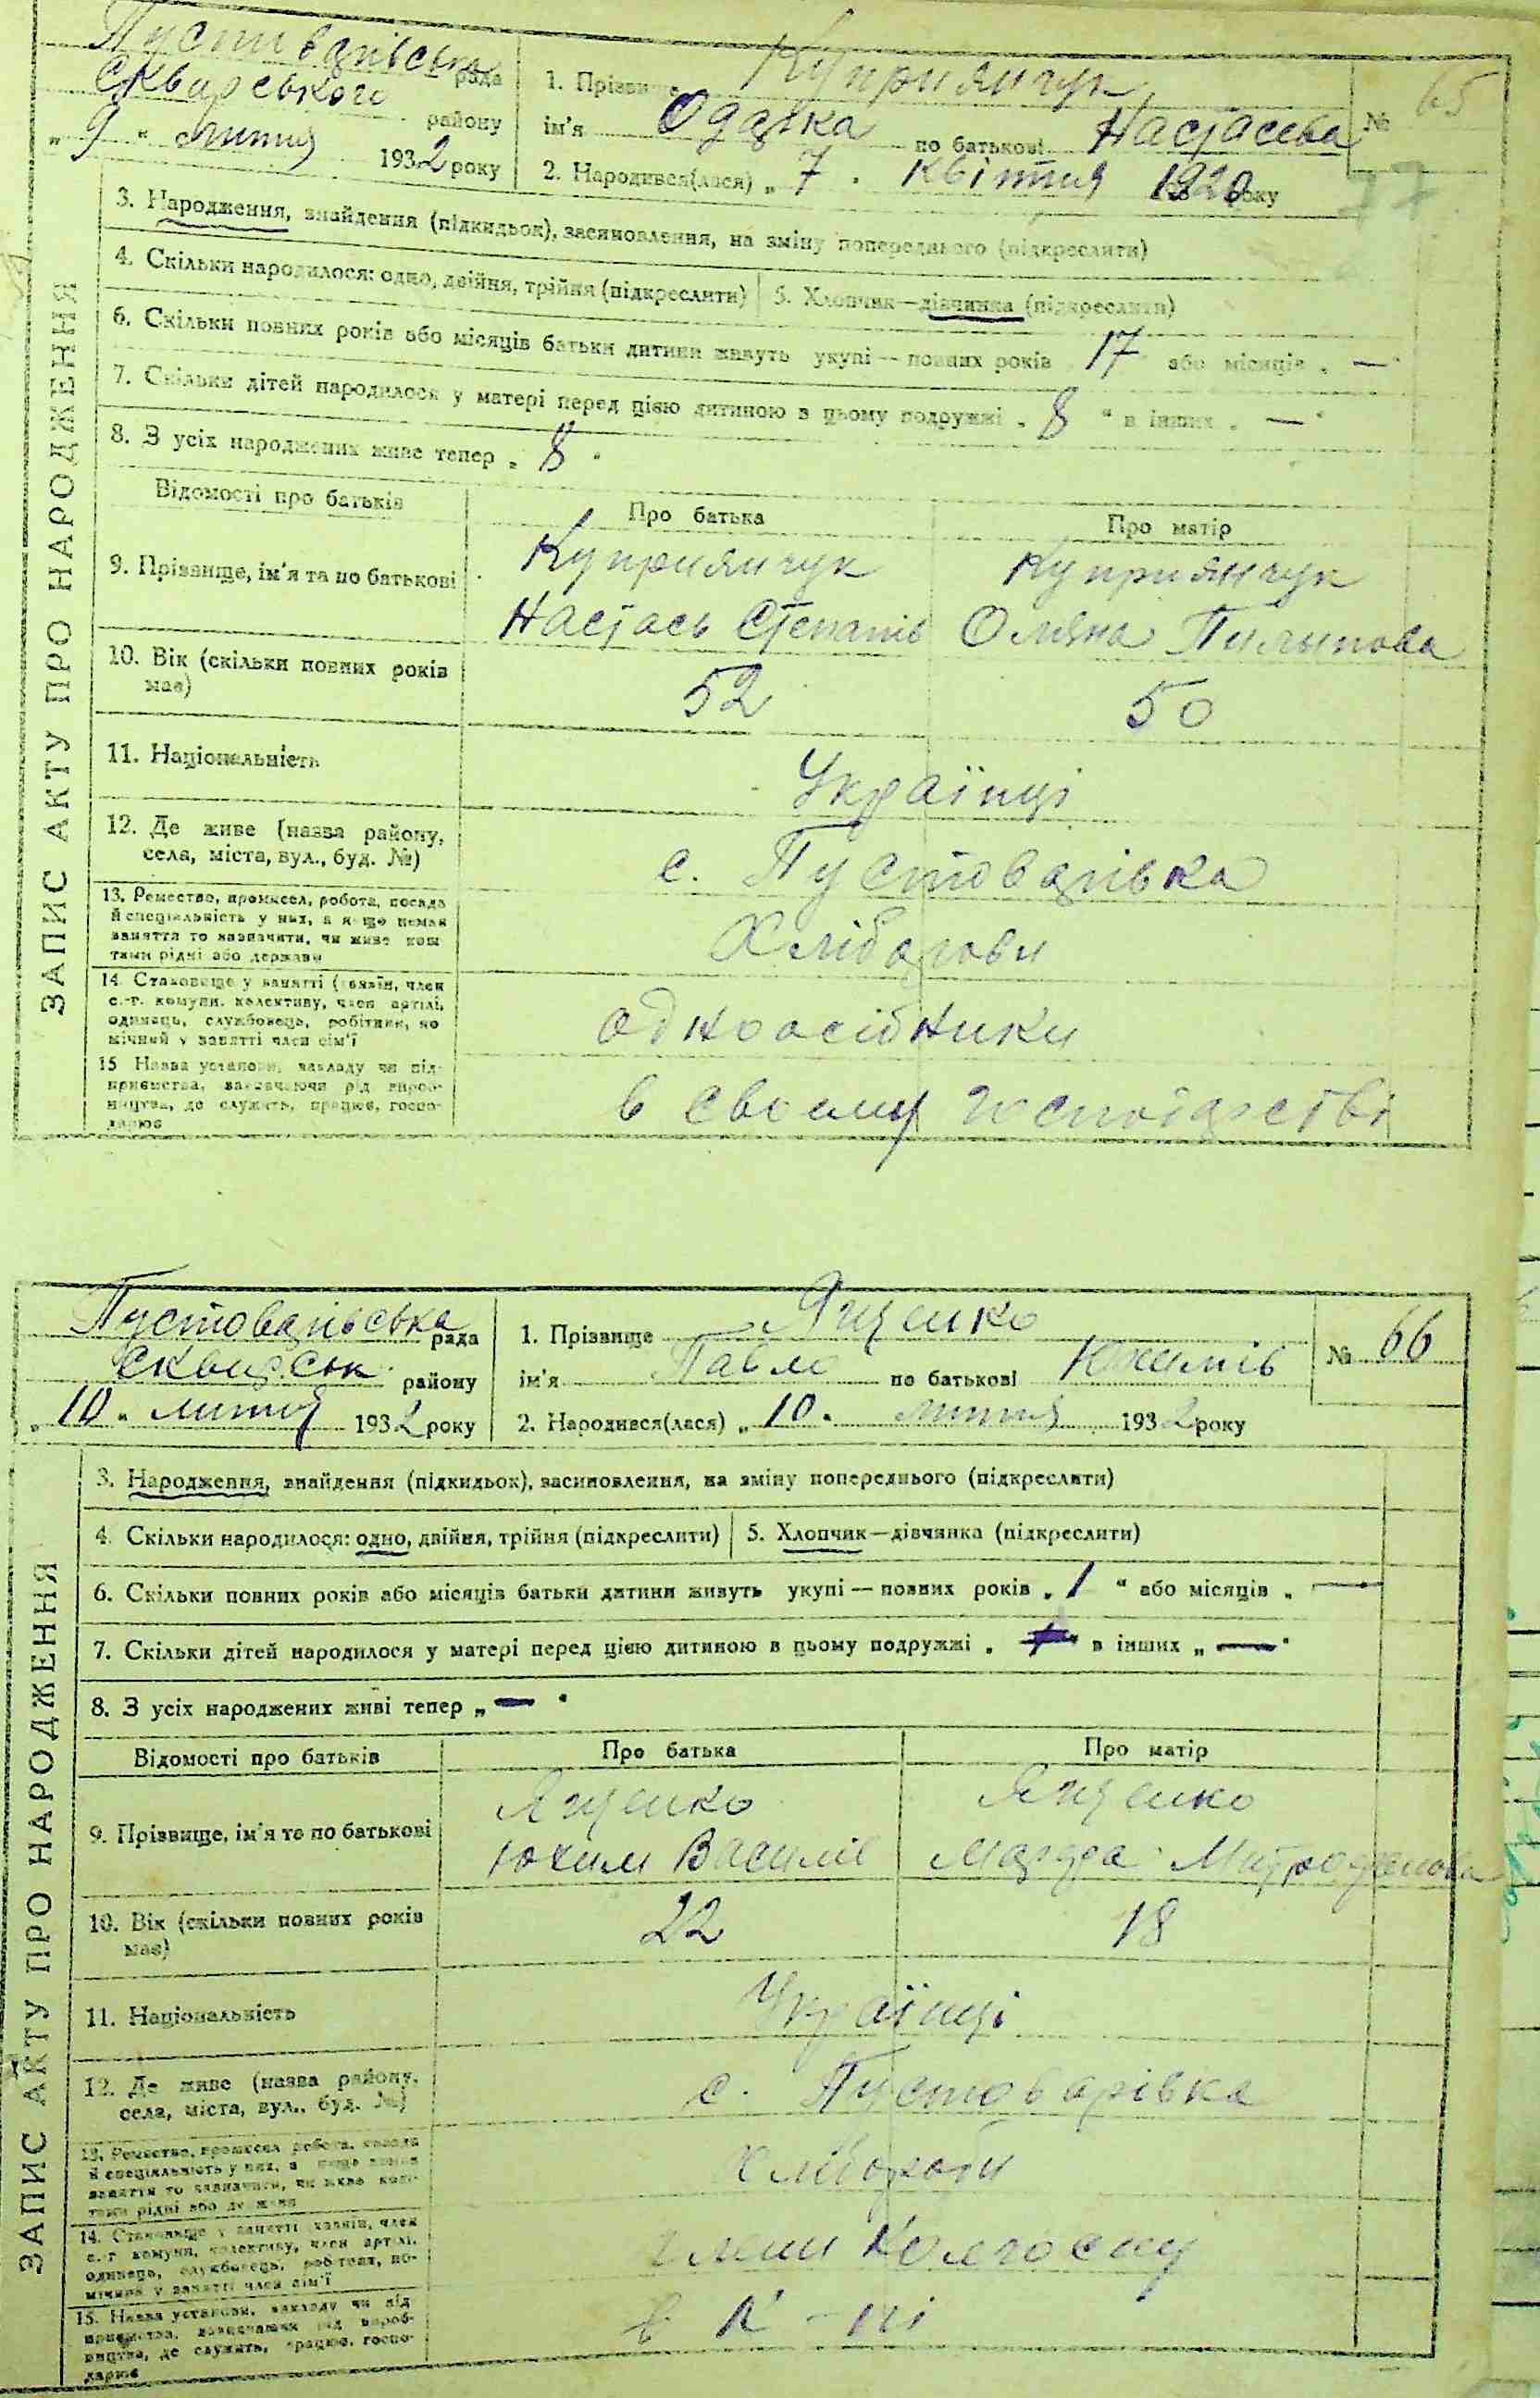 Пустоварівська рада
Сквирського району
„ 9 “ липня 1932 року
1. Прізвище Куприянчук
ім'я Одарка по батькові Настасева
№ 65
2. Народився(лася) „ 7 “ квітня 1920 року
3. Народження, знайдення (підкидьок), засиновлення, на зміну попереднього (підкреслити)
4. Скільки народилося: одно, двійня, трійня (підкреслити) 5. Хлопчик—дівчинка (підкреслити)
6. Скільки повних років або місяців батьки дитини живуть укупі — повних років „ 17 або місяців „ —
7. Скільки дітей народилося у матері перед цією дитиною в цьому подружжі „ 8 “ в інших „ — “
8. З усіх народжених живе тепер „ 8 “
Відомості про батьків Про батька Про матір
9. Прізвище, ім'я та по батькові
Куприянчук Куприянчук
Настась Степанів Оляна Пилипова
10. Вік (скільки повних років має) 52 50
11. Національність Українці
12. Де живе (назва району, села, міста, вул., буд. №) с. Пустоварівка
13. Ремество, промисел, робота, посада
й спеціяльність у них, а якщо немає
заняття то зазначити, чи живе кош-
тами рідні або держави
Хлібороби
14. Становище у занятті (хазяїн, член
с.-г. комуни, колективу, член артілі,
одинець, службовець, робітник, по-
мічний у занятті член сім'ї
одноосібники
15. Назва установи, закладу чи під-
приємства, зазначаючи рід вироб-
ництва, де служить, працює, госпо-
дарює
в своему господарстві
ЗАПИС АКТУ ПРО НАРОДЖЕННЯ
Пустоварівська рада
Сквирськ. району
„ 10 “ липня 1932 року
1. Прізвище Ященко
ім'я Павло по батькові Юхимів
№ 66
2. Народився(лася) „ 10 “ липня 1932 року
3. Народження, знайдення (підкидьок), засиновлення, на зміну попереднього (підкреслити)
4. Скільки народилося: одно, двійня, трійня (підкреслити) 5. Хлопчик—дівчинка (підкреслити)
6. Скільки повних років або місяців батьки дитини живуть укупі — повних років „ 1 “ або місяців „ —
7. Скільки дітей народилося у матері перед цією дитиною в цьому подружжі „ в інших „ — “
8. З усіх народжених живі тепер „ — “
Відомості про батьків Про батька Про матір
9. Прізвище, ім'я те по батькові
Ященко Ященко
Юхим Василів Митрофанова
10. Вік (скільки повних років має) 22 18
11. Національність Українці
12. Де живе (назва району, села, міста, вул., буд. №) с. Пустоварівка
13. Ремество, промисел робота, посада
й спеціяльність у них, а якщо немає
заняття то зазначити, чи живе кош-
тами рідні або держави
хлібороби
14. Становище у занятті хазяїн, член
с.-г комуни, колективу, член артілі,
одинець, службовець, робітник, по-
мічний у занятті член сім'ї
члени колгоспу
15. Назва установи, закладу чи під
приємства, зазначаючи рід вироб-
ництва, де служить, працює, госпо-
дарює
в к-пі
ЗАПИС АКТУ ПРО НАРОДЖЕННЯ